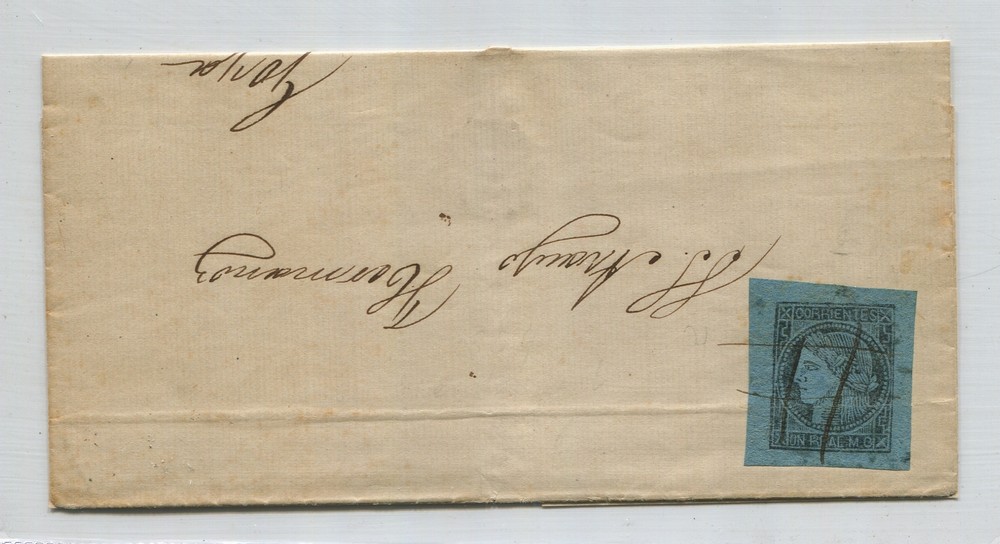 SS. Araujo Hermanos
Goya
CORRIENTES
UN REAL M.C.